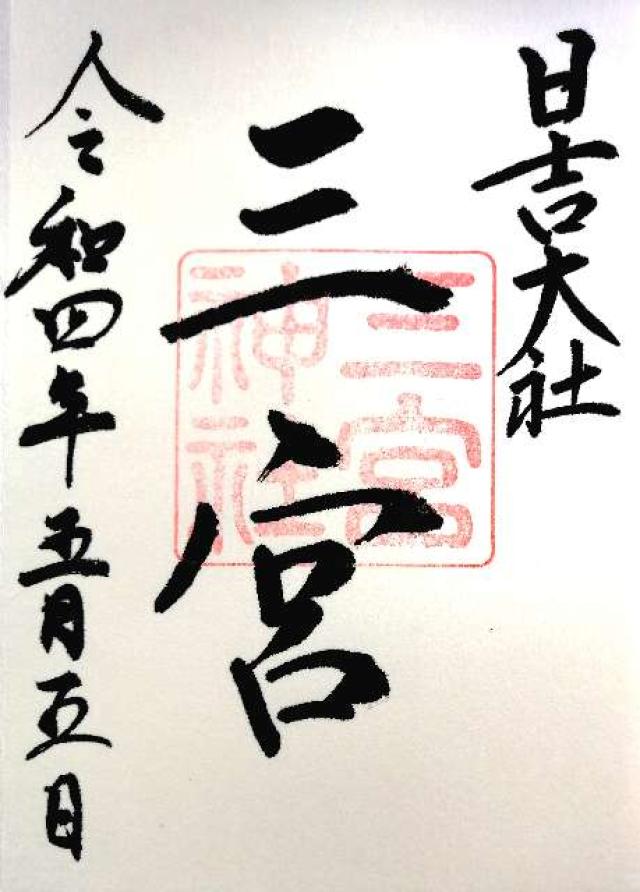 日吉大社
三宮
三宮
神社
令和四年五月五日